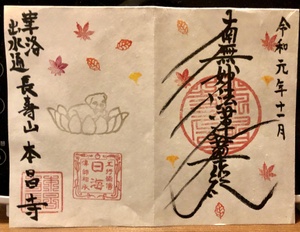 令和元年十一月
南無妙法蓮華経
華洛
出水通
長寿山 本昌寺
日海